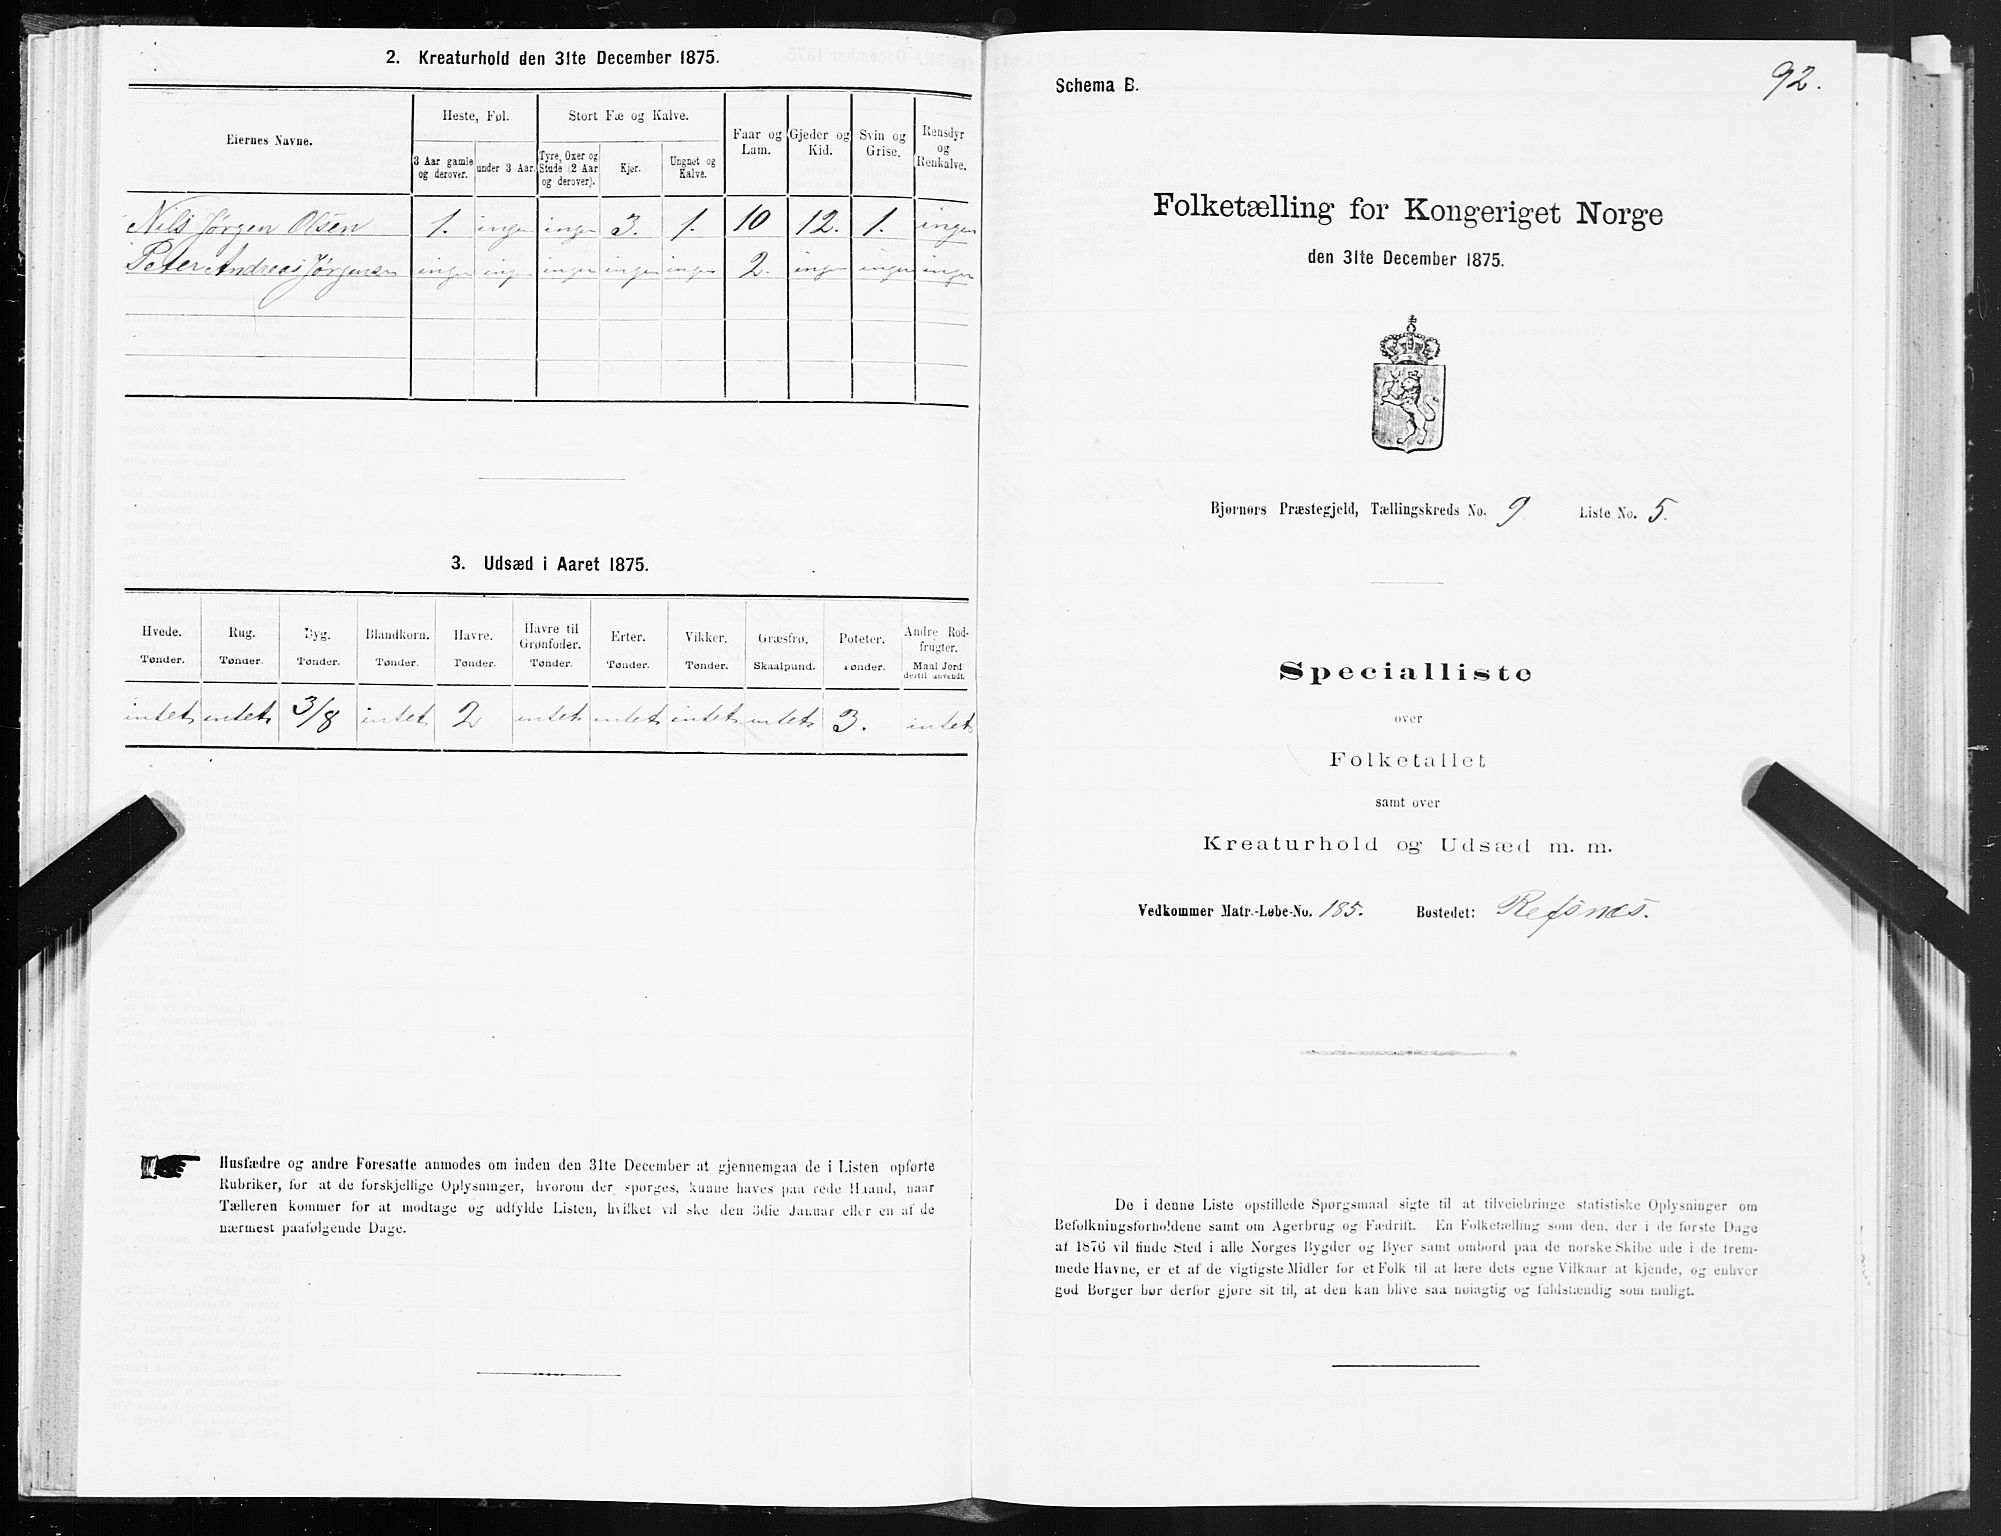 2. Kreaturhold den 31te December 1875.
Eiernes Navne.
Heste, Føl.
Stort Fæ og Kalve.
Faar og Lam.
Gjeder og Kid.
Svin og Grise.
Rensdyr og Renkalve.
3 Aar gamle og derover.
under 3 Aar.
Tyre, Oxer og Stude (2 Aar og derover).
Kjer.
Ungnet og Kalve.
Nils Jørgen Olsen 1. ingen ingen 3. 1. 10 12. 1. ingen
Peter Andreas Jørgensen ingen ingen ingen ingen ingen 2. ingen ingen ingen
3. Udsæd i Aaret 1875.
Hvede. Rug. Byg. Blandkorn. Havre. Havre til Grønfoder. Erter. Vikker. Græsfrø. Poteter. Andre Rodfrugter.
Tønder. Tønder. Tønder. Tønder. Tønder. Tønder. Tønder. Tønder. Skaalpund. Tønder. Maal Jord dertil anvendt.
intet intet 3/8 intet 2 intet intet intet intet 3. intet
Husfædre og andre Foresatte anmodes om inden den 31te December at gjennemgaa de i Listen opførte
Rubriker, for at de forskjellige Oplysninger, hvorom der spørges, kunne haves paa rede Haand, naar
Tælleren kommer for at modtage og udfylde Listen, hvilket vil ske den 3die Januar eller en af de
nærmest paafølgende Dage.
92.
Schema B.
Folketælling for Kongeriget Norge
den 31te December 1875.
Bjørnørs Præstegjeld, Tællingskreds No. 9 Liste No. 5.
Specialliste
over
Folketallet
samt over
Kreaturhold og Udsæd m. m.
Vedkommer Matr.-Løbe-No. 185. Bostedet: Refsnæs.
De i denne Liste opstillede Spørgsmaal sigte til at tilveiebringe statistiske Oplysninger om
Befolkningsforholdene samt om Agerbrug og Fædrift. En Folketælling som den, der i de første Dage
af 1876 vil finde Sted i alle Norges Bygder og Byer samt ombord paa de norske Skibe ude i de frem-
mede Havne, er et af de vigtigste Midler for et Folk til at lære dets egne Vilkaar at kjende, og enhver
god Borger bør derfor gjøre sit til, at den kan blive saa nøiagtig og fuldstændig som muligt.